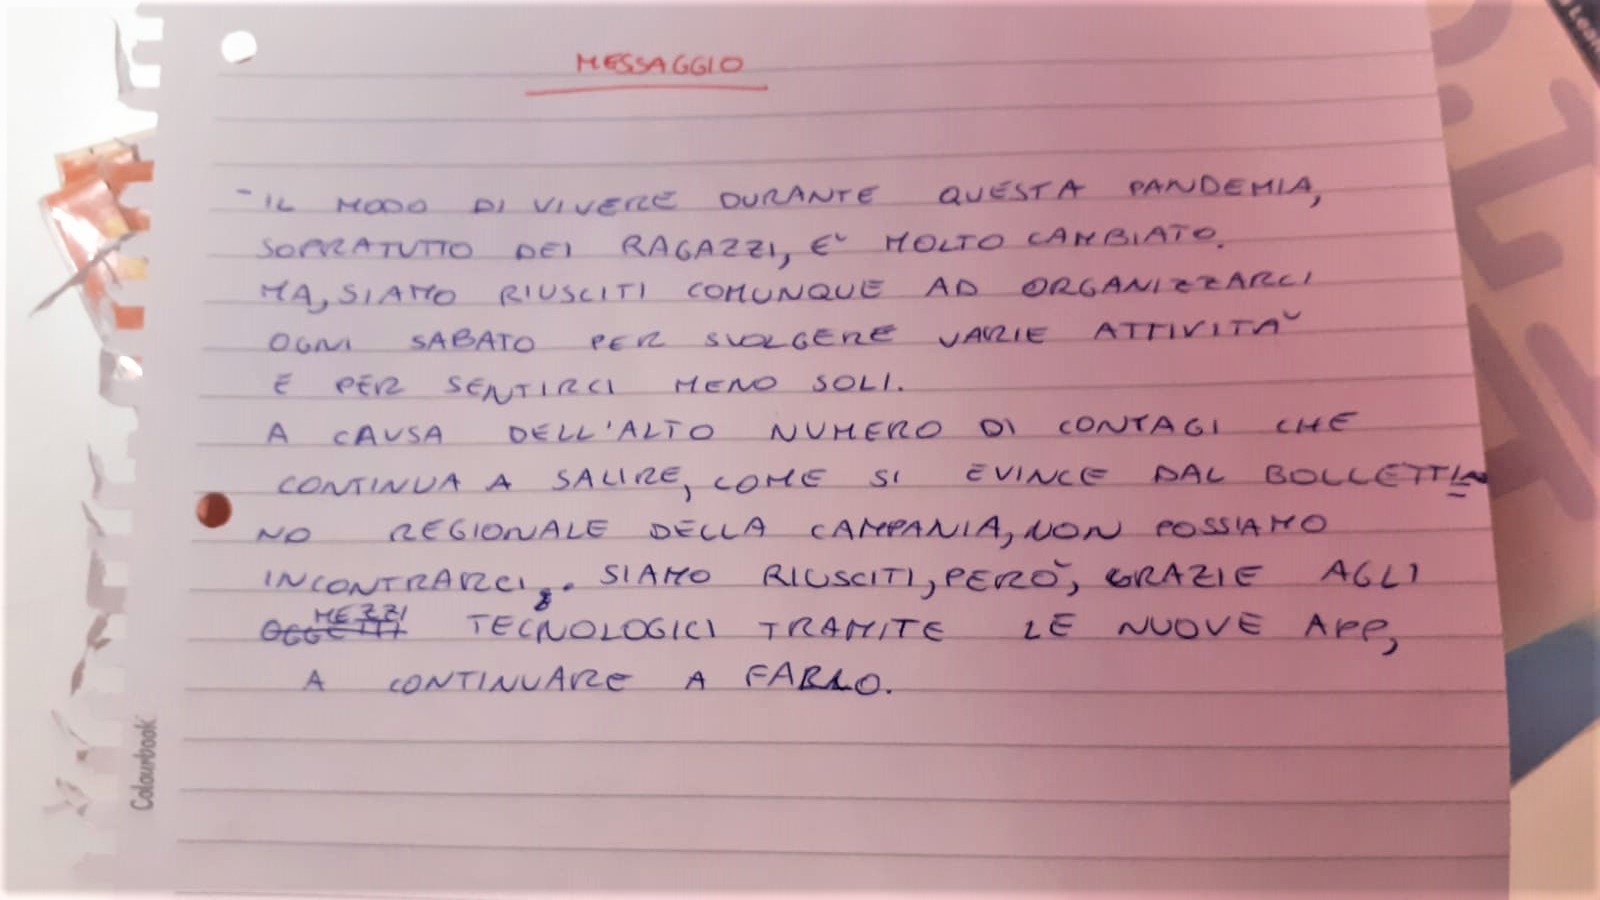 MESSAGGIO
- IL MODO DI VIVERE DURANTE QUESTA PANDEMIA,
SOPRATUTTO DEI RAGAZZI, E' MOLTO CAMBIATO.
MA, SIAMO RIUSCITI COMUNQUE AD ORGANIZZARCI
OGNI SABATO PER SVOLGERE VARIE ATTIVITA'
E PER SENTIRCI MENO SOLI.
A CAUSA DELL'ALTO NUMERO DI CONTAGI CHE
CONTINUA A SALIRE, COME SI EVINCE DAL BOLLETTI
NO REGIONALE DELLA CAMPANIA, NON POSSIAMO
INCONTRARCI. SIAMO RIUSCITI, PERO', GRAZIE AGLI
OGGETTI MEZZI TECNOLOGICI TRAMITE LE NUOVE APP,
A CONTINUARE A FARLO.
Colourbook